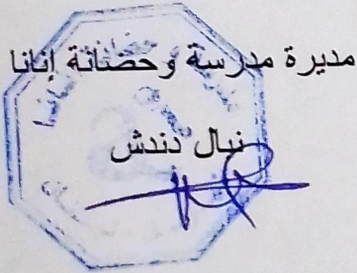 مديرة مدرسة وحضانة إنانا
نبال دندش